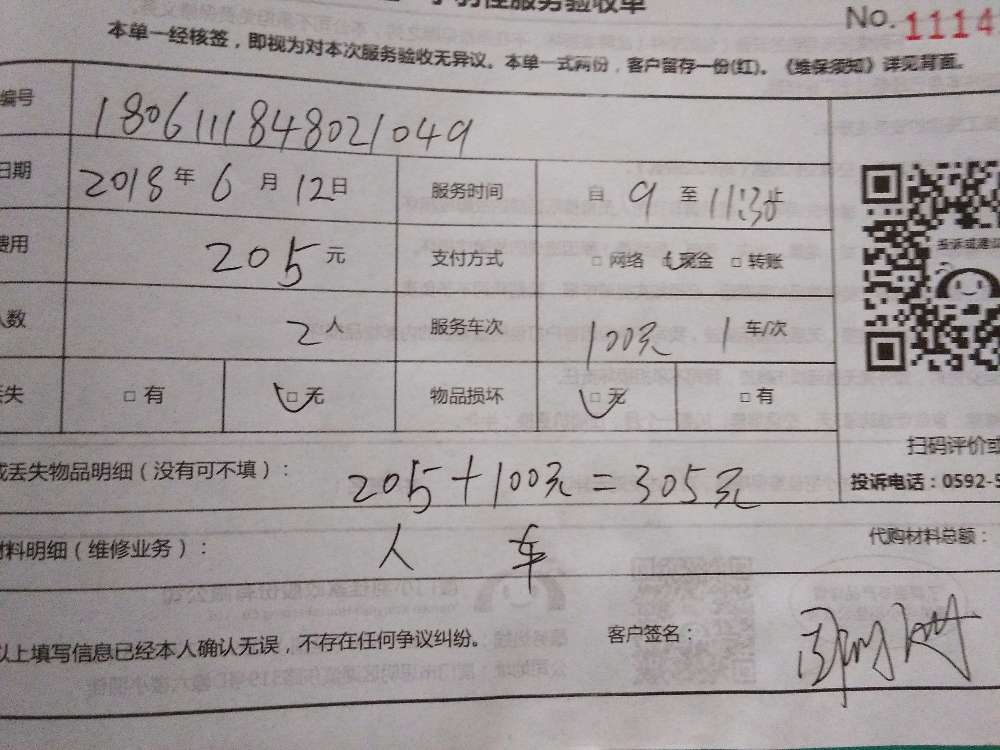 服务验收单
No. 1114
本单一经核签，即视为对本次服务验收无异议。本单一式两份，客户留存一份(红)。《维保须知》详见背面。
编号 1806111848021049
日期 2018年6月12日 服务时间 自 9 至 11:30止
费用 205元 支付方式 □网络 现金 □转账
人数 2人 服务车次 100元 1车/次
丢失 □有 □无 物品损坏 □无 □有
投诉或建议
扫码评价或
投诉电话：0592-5
或丢失物品明细（没有可不填）： 205+100元=305元
材料明细（维修业务）： 人 车 代购材料总额：
以上填写信息已经本人确认无误，不存在任何争议纠纷。 客户签名：